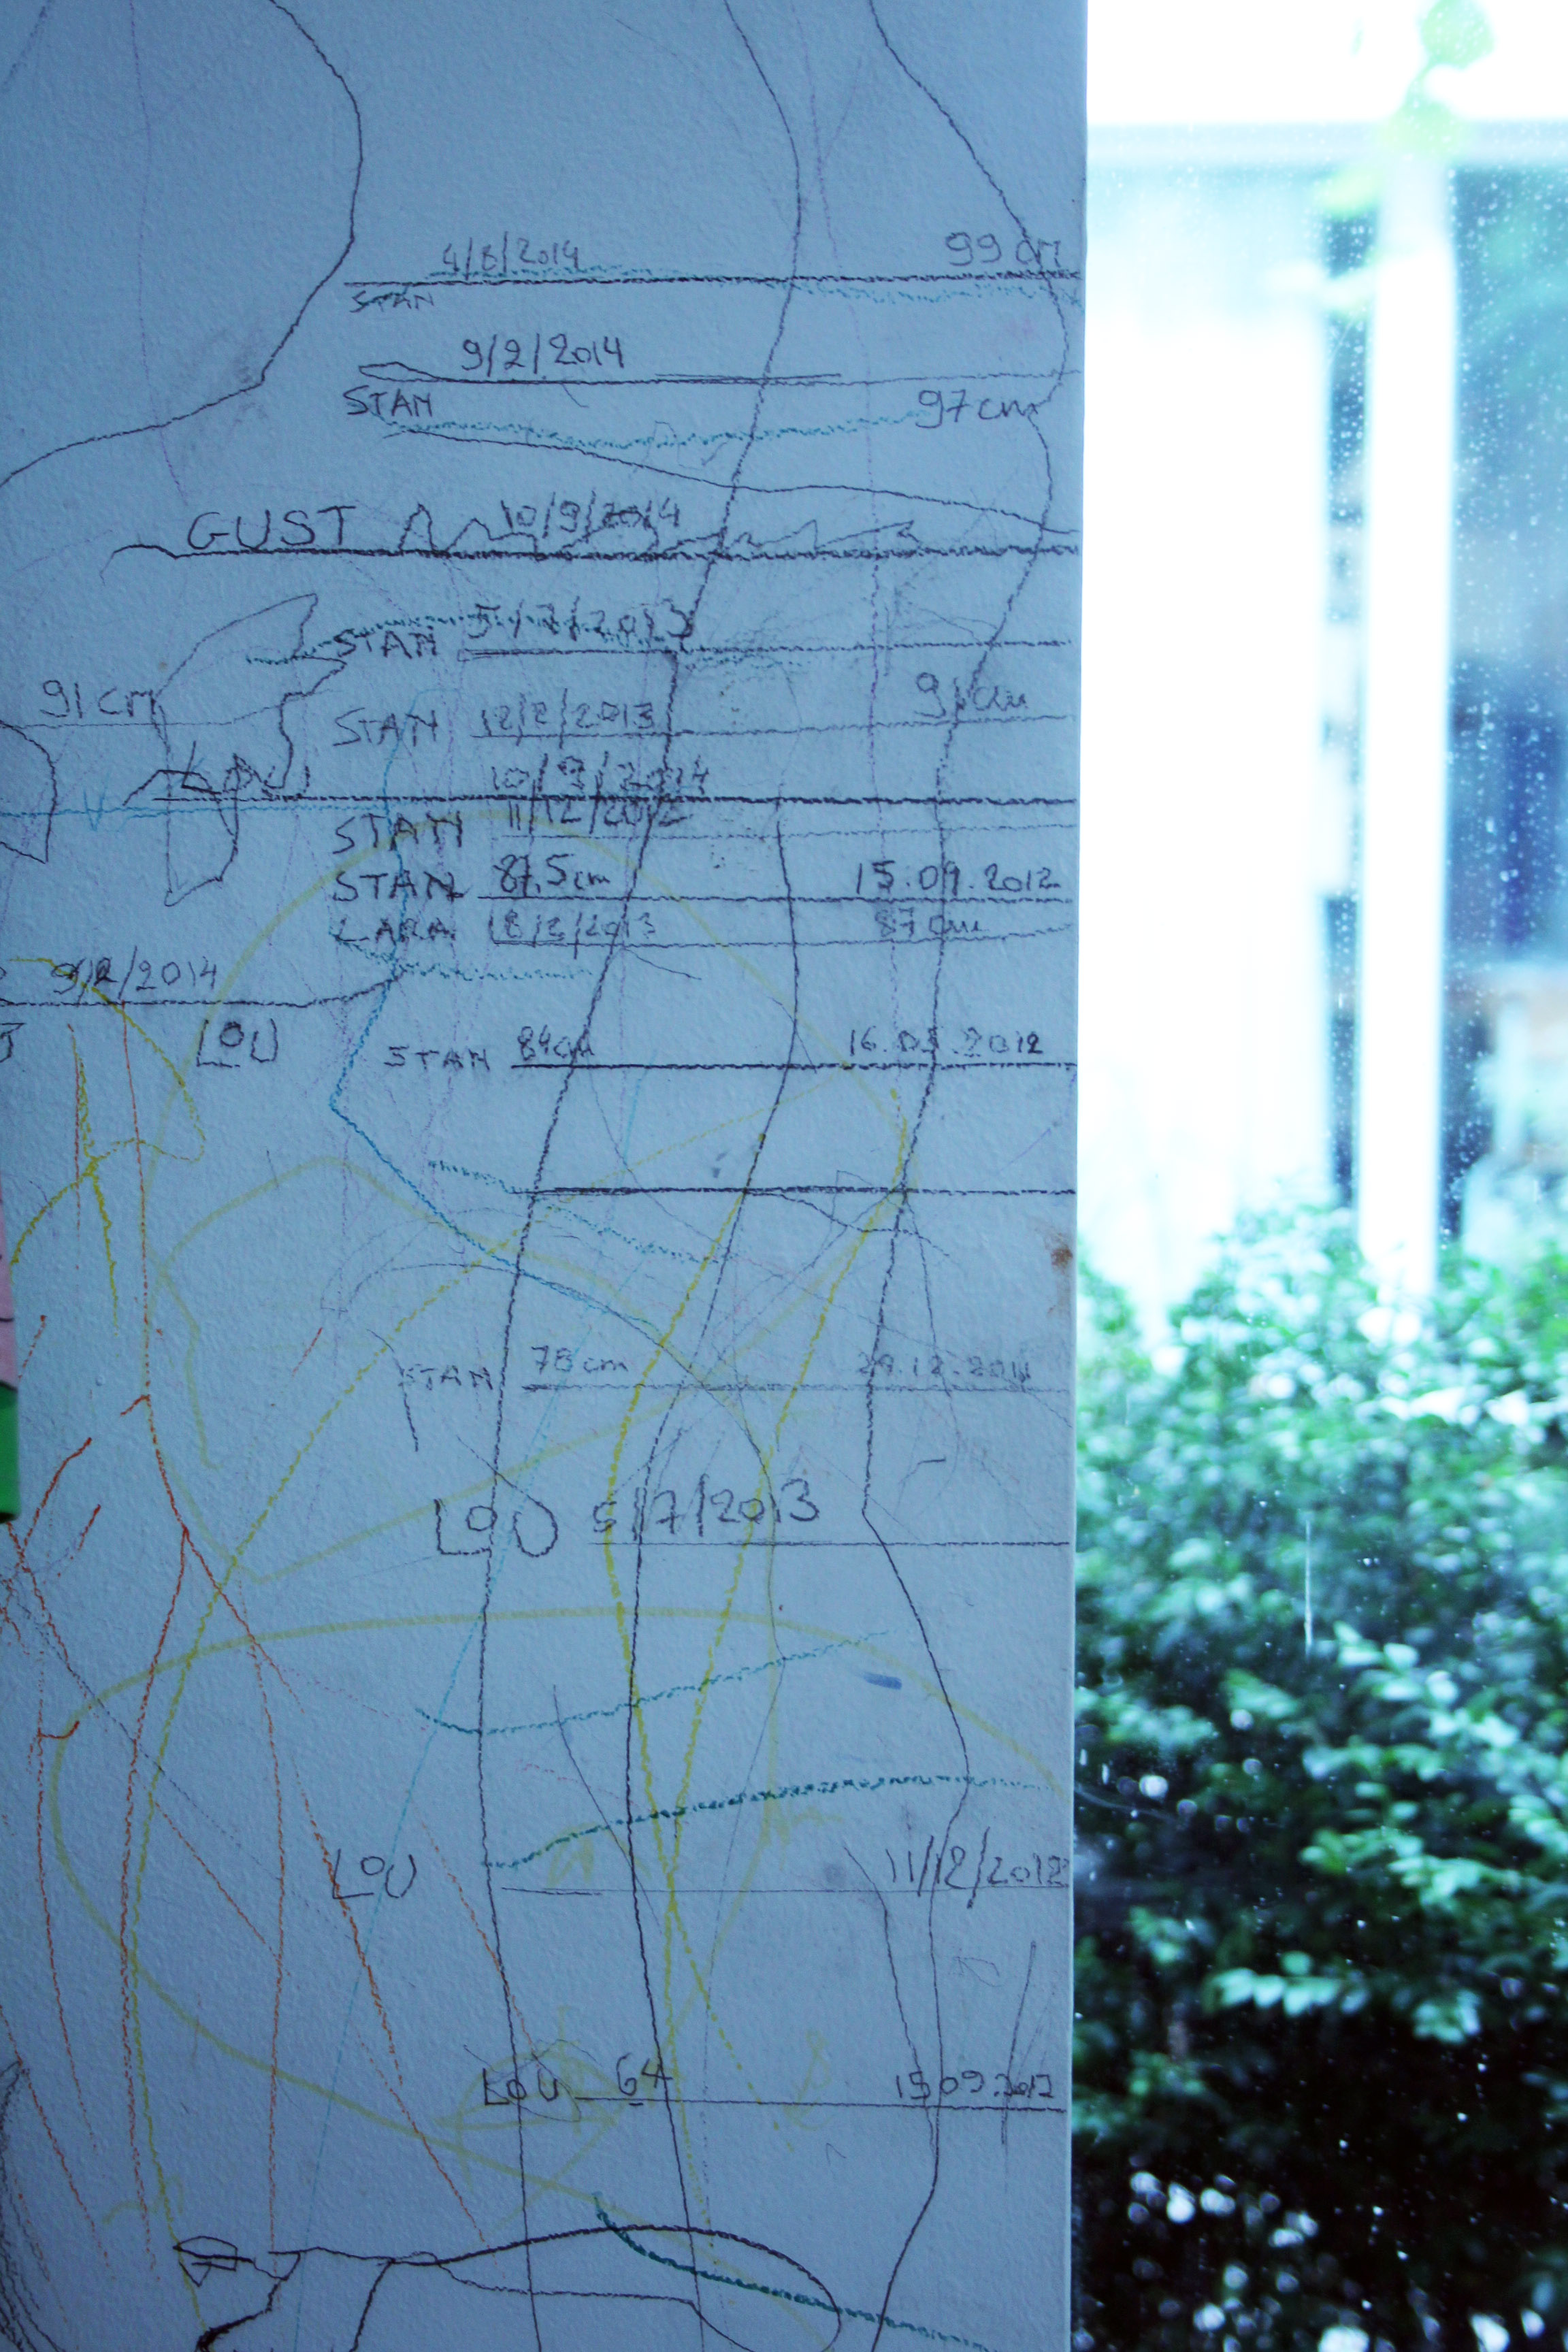 4/8/2014 99 cm
STAN
9/2/2014
STAN 97cm
GUST 10/9/2014
STAN 5/7/2013
91cm
STAN 12/2/2013 91cm
LOU 10/9/2014
STAN 11/12/2012
STAN 87,5cm 15.09.2012
LARA 18/2/2013 87cm
9/2/2014
LOU
STAN 84cm 16.05.2012
STAN 78cm 29.12.2011
LOU 5/7/2013
LOU 11/12/2012
LOU 64 15.09.2012